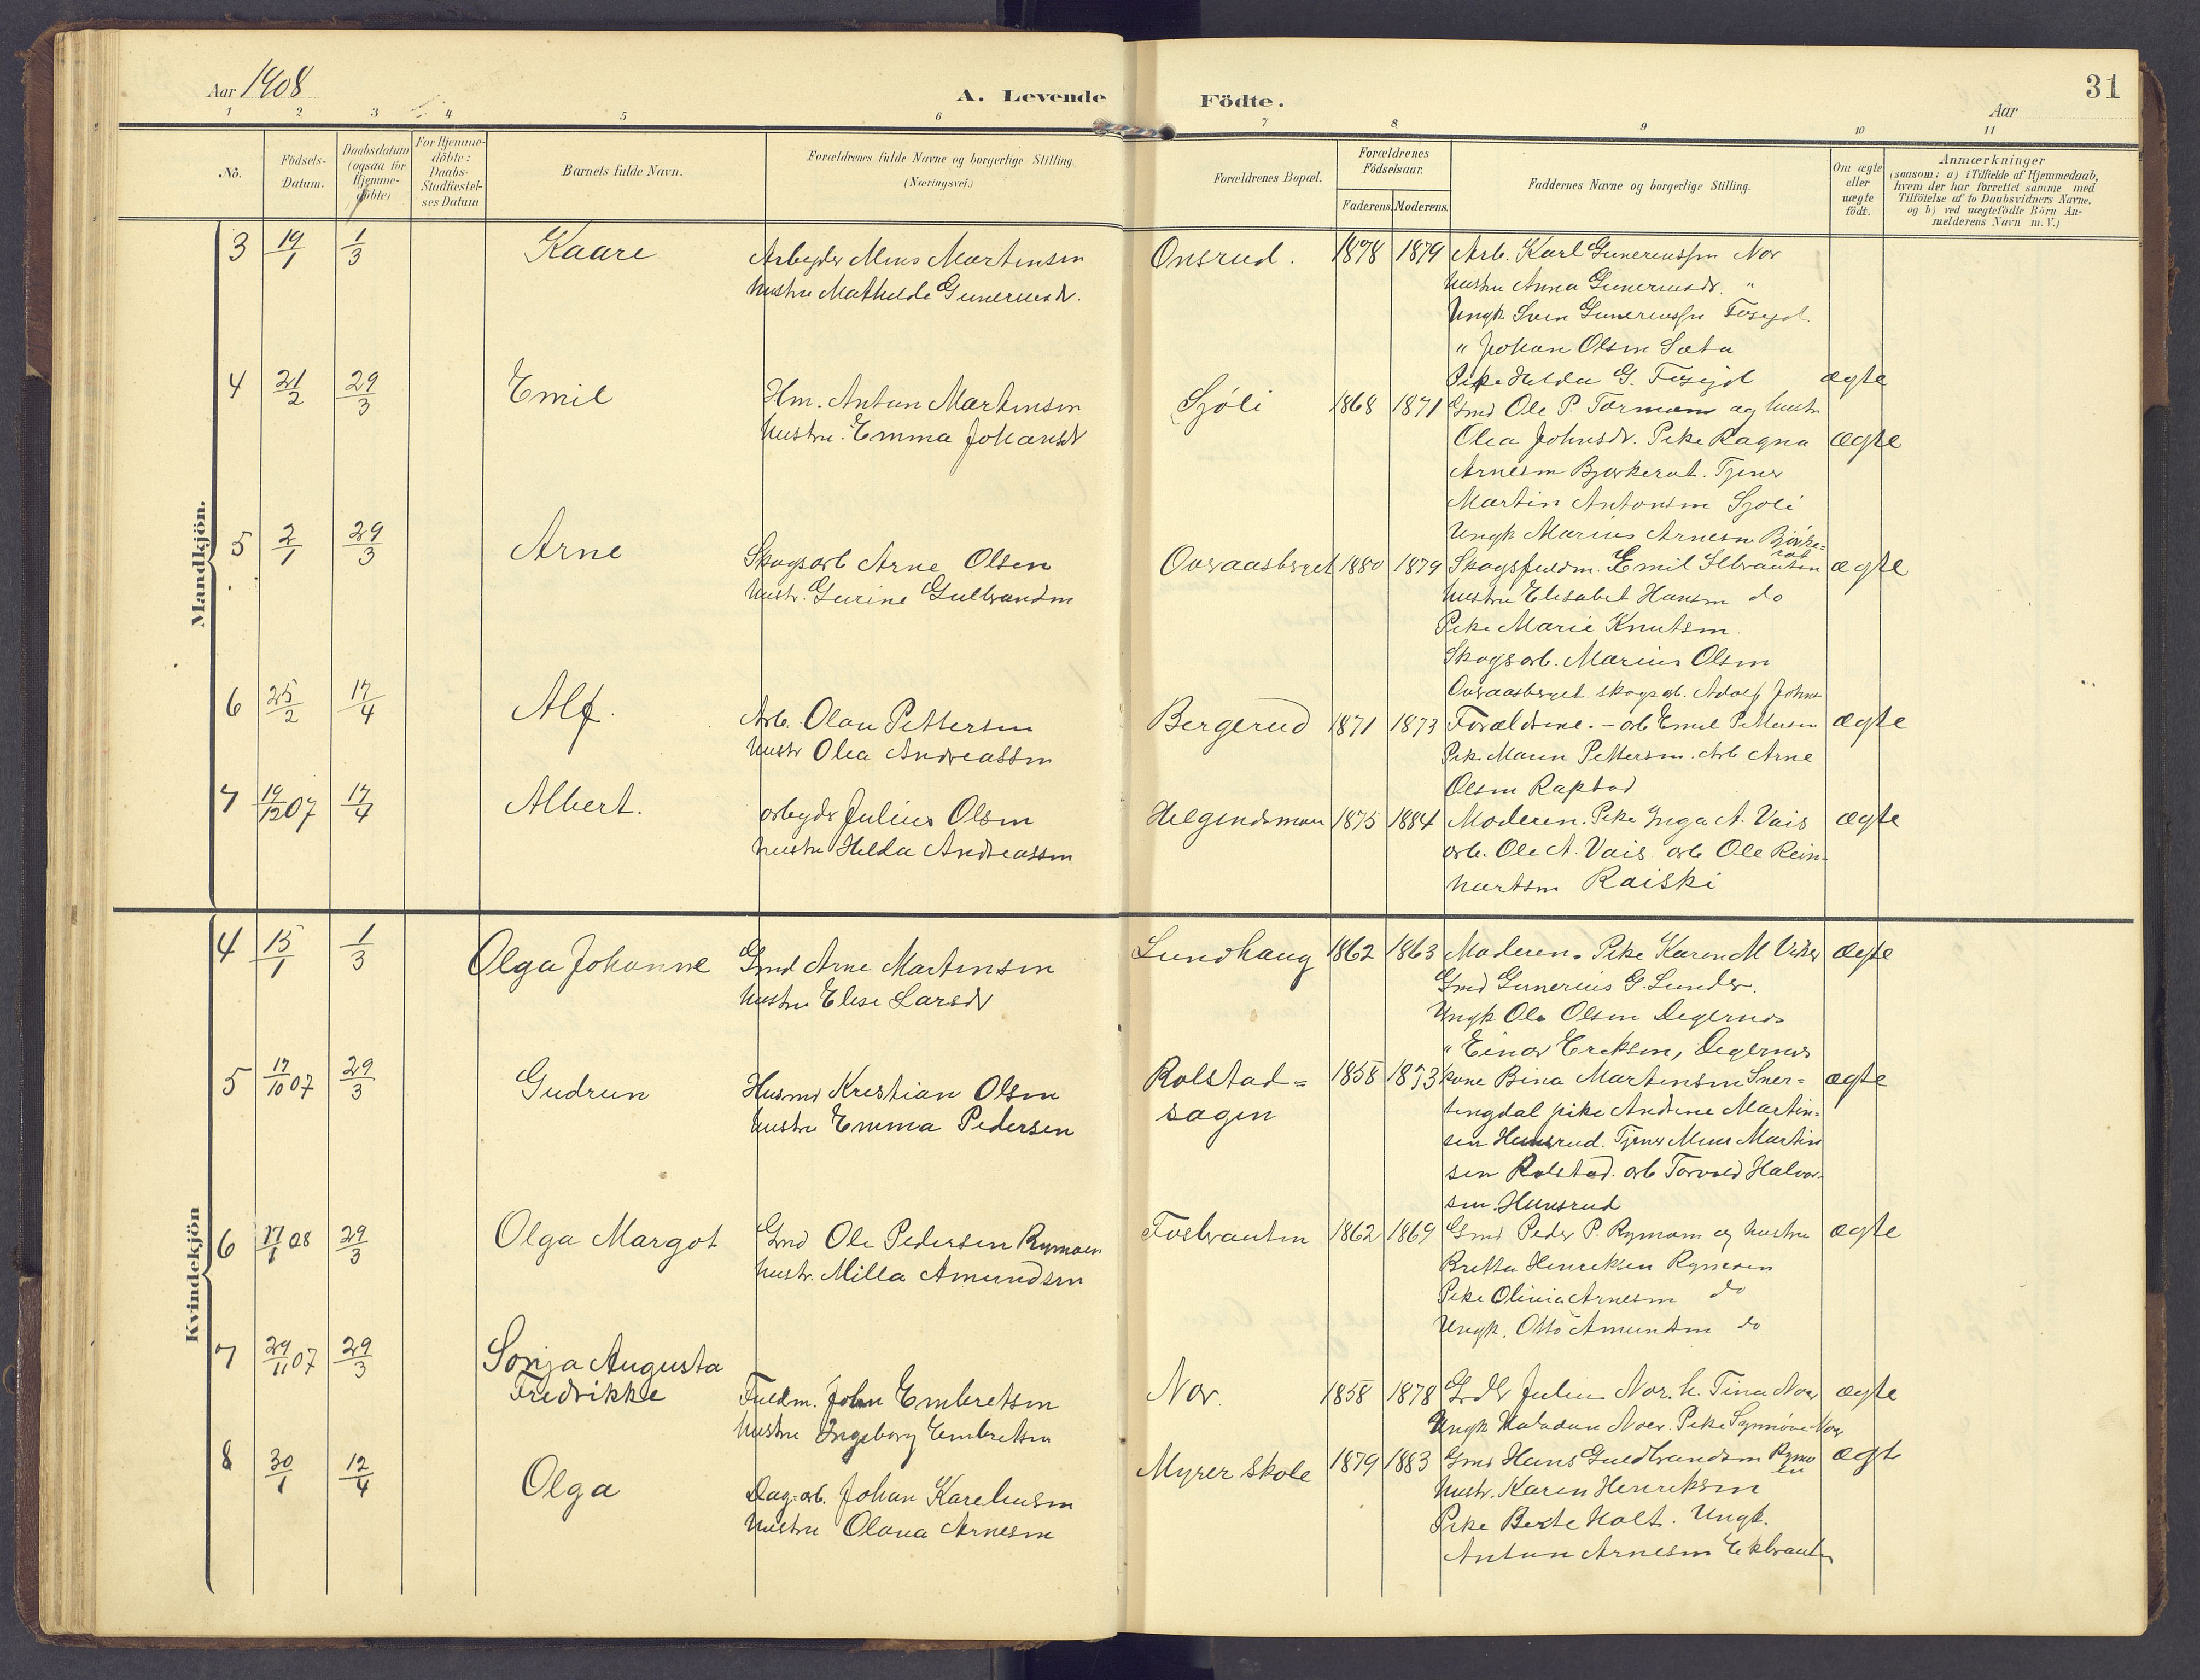 Aar 1908
A. Levende Födte.
31
Aar
1 2 3 4 5 6 7 8 9 10 11
No.
Födsels-
Datum.
Daabsdatum
(ogsaa for
Hjemme-
døbte)
For Hjemme-
döbte:
Daabs-
Stadfæstel-
ses Datum
Barnets fulde Navn.
Forældrenes fulde Navne og borgerlige Stilling.
(Næringsvei.)
Forældrenes Bopæl.
Forældrenes
Födselsaar.
Faderens. Moderens.
Faddernes Navne og borgerlige Stilling.
Om ægte
eller
uægte
födt.
Anmærkninger
(saasom: a) i Tilfælde af Hjemmedaab,
hvem der har forrettet samme med
Tilföielse af to Daabsvidners Navne.
og b) ved uægtefödte Börn An-
melderens Navn m.V.)
Mandkjön.
3 19/1 1/3 Kaare
Arbeyder Mens Martinsen
hustru Mathilde Gunerusdr.
Onsrud. 1878 1879
Arb. Karl Gunereussen Nor
hustru Anna Gunerusdr. "
Ungk Sven Gunereussen
" Johan Olsen Sæta
Pike Helda G.
ægte
4 21/2 29/3 Emil
Hm. Anton Martinsen
hustru. Emma Johansdr
Sjöli 1868 1871
Gmd Ole P. Tormoen og hustr.
Olea Johnsdr. Pike Ragna
Arnesen Bjerkerat. Tjener
Martin Antonsen Sjoli
Ungk Marius Arnesen Björke=
rat
ægte
5 2/1 29/3 Arne
Skogsarb Arne Olsen
hustr. Gurine Gulbrandsen
Overaasberget 1880 1879
Skogsfuldm. Emil Ilbraaten
hustru Elisabet Hansen do
Pike Marie Knutsen.
Skogsarb. Marius Olsen
Overaasberget skogsarb. Adolf Johns
ægte
6 25/2 17/4 Alf.
Arb. Olau Pettersen
hustr Olea Andreassen
Bergerud 1871 1873
Forældrene. - arb Emil Pettersen
Pike Maren Pettersen. Arb Arne
Olsen Rapstad
ægte
7 19/12 07 17/4 Albert.
arbeyder Julius Olsen
hustru Helda Andreassen
Helgendsmoen 1875 1884
Moderen. Pike Inga A. Vais
arb. Ole A. Vais. arb Ole Rein-
hartsen Raiski
ægte
Kvindekjön
4 15/1 1/3 Olga Johanne
Gmd Arne Martinsen
hustru Elise Larsdr
Lundhaug 1862 1863
Moderen. Pike Karen M Viker
Gmd Gunerius G. Lunder.
Ungk Ole Olsen Degernes
" Einar Ereksen, Degernes
ægte
5 17/10 07 29/3 Gudrun
Husmd Kristian Olsen
hustru Emma Pedersen
Rolstad=
sagen
1858 1873
kone Bina Martinsen Sner=
tingdal pike Andrine Martin=
sen Hunsrud. Tjener Mens Martin
sen Rolstad. arb Torvald Halvor-
sen. Hunsrud
ægte
6 17/1 08 29/3 Olga Margot
Gmd Ole Pedersen Rymoen
hustr. Milla Amundsen
Fosbraaten 1862 1869
Gmd Peder P. Rymoen og hustru
Bretta Henriksen Rymoen
Pike Olivia Arnesen do
Ungk. Otto Amundsen do
ægte
7 29/11 07 29/3 Sonja Augusta
Fredrikke
Fuldm. John Embretsen
hustru Ingeborg Embretsen
Nor. 1858 1878
Grdbr Julius Nor. h. Tina Noer
Ungk Halvdan Noer. Pike Synnøve Noer
ægte
8 30/1 12/4 Olga
Dag=arb. Johan Kareliusen
hustru Olava Arnesen
Myrer skole 1879 1883
Gmd Hans Guldbrandsen Rymo
en
hustr. Karen Henriksen
Pike Berte Holt. Ungk.
Anton Arnesen Ekbraaten
ægte